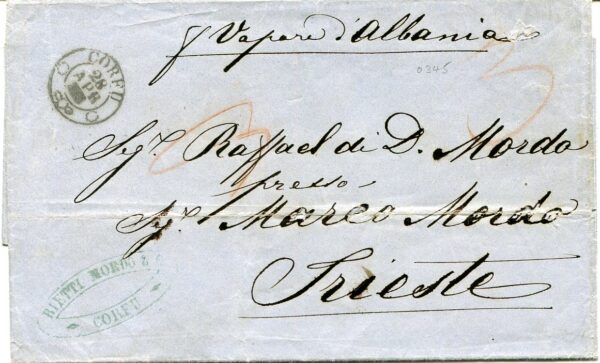 p Vapore d'Albania
0345
CORFU
28
APR
3
Sigr. Raffael di D. Mordo
presso
Sigr. Marco Mordo
Trieste
RIETTI MORDO &
CORFU